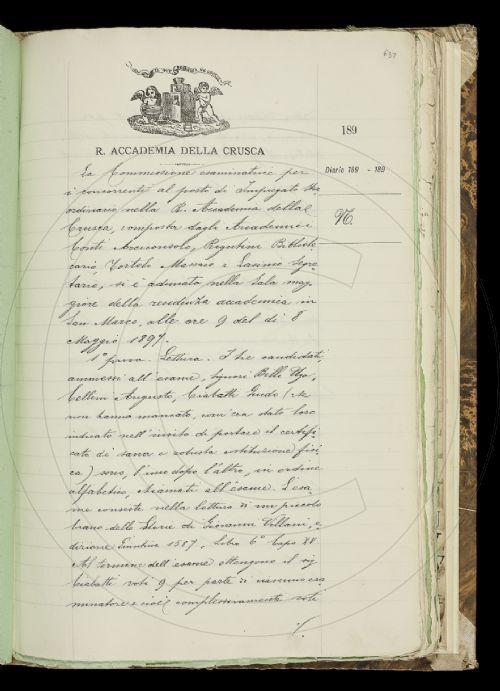 637
189
R. ACCADEMIA DELLA CRUSCA
Diario 189 - 189
N.
La Commissione esaminatrice per
i concorrenti al posto di Impiegato Stra
ordinario nella R. Accademia della
Crusca, composta dagli Accademici
Conti Arciconsolo, Rigutini Bibliote
cario, Tortoli Massaio e Lasinio Segre
tario, si è adunata nella Sala mag
giore della residenza accademica in
San Marco, alle ore 9 del dì 8
Maggio 1897.
1ª prova. Lettura. I tre candidati
ammessi all'esame, Signori Belli Ugo,
Cellini Augusto, Ciabatti Guido (che
non hanno mancato, com'era stato loro
indicato nell'invito di portare il certifi
cato di sana e robusta costituzione fisi
ca) sono, l'uno dopo l'altro, in ordine
alfabetico, chiamati all'esame. L'esa
me consiste nella lettura di un piccolo
brano delle Storie di Giovanni Villani, e
dizione Giuntina 1587, Libro 6º Capo XV.
Al termine dell'esame ottengono il sig.
Ciabatti voti 9 per parte di ciascuno esa
minatore e cioè complessivamente voti